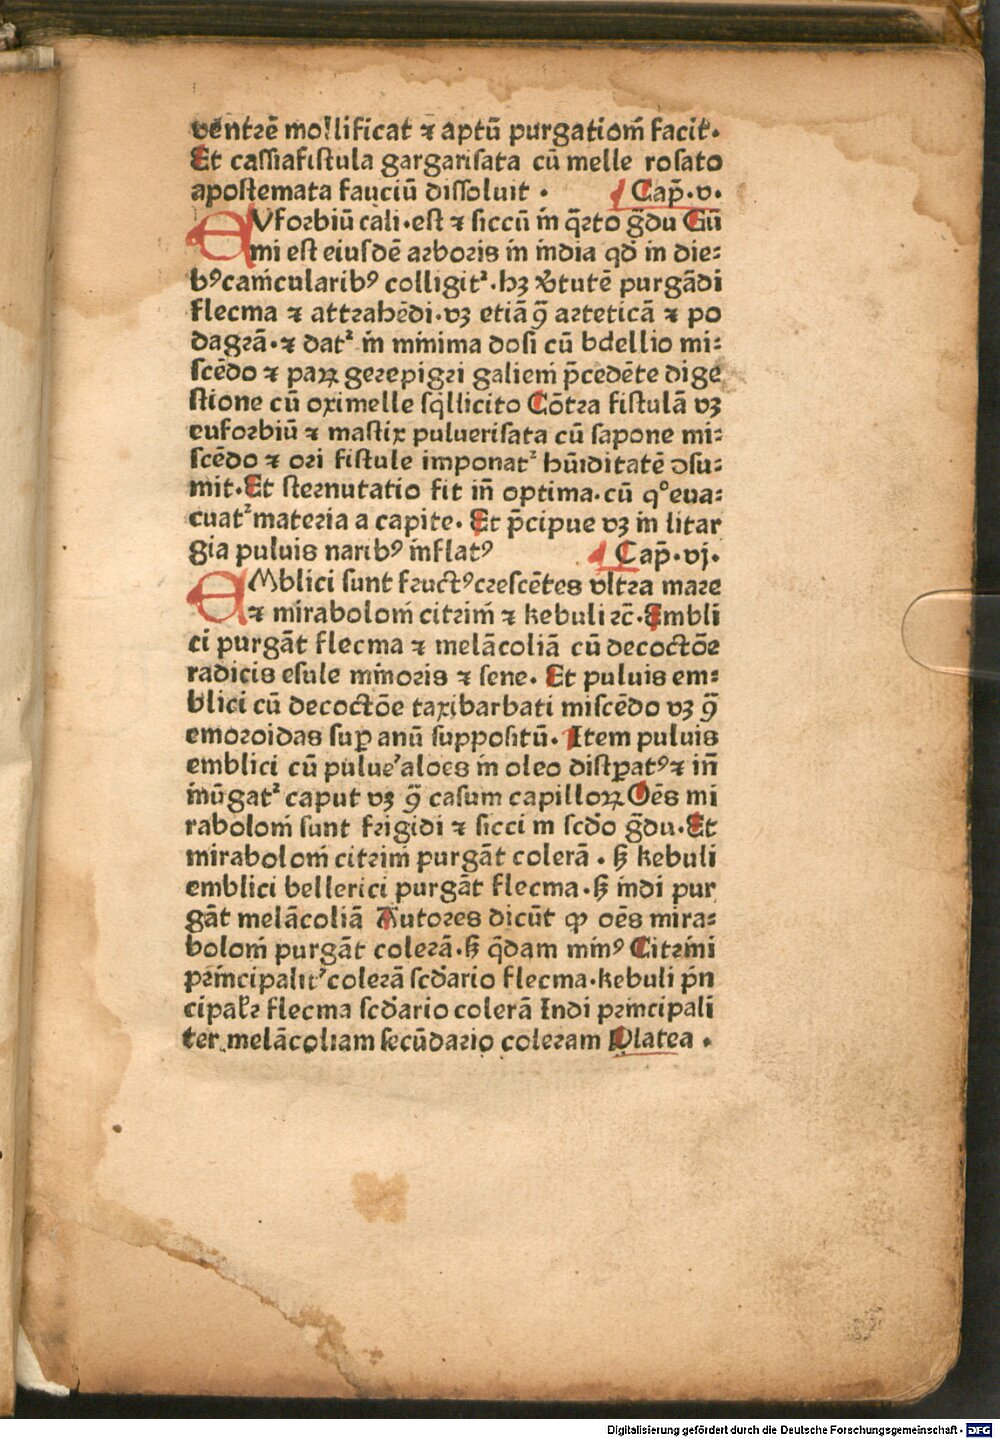 ventrē mollificat ⁊ aptū purgationi facit.
Et cassiafistula gargarisata cū melle rosato
apostemata fauciū dissoluit . Cap̄.v.
EVforbiū cali.est ⁊ siccū in q̄rto ḡdu Gū
mi est eiusdē arboris in india qd̄ in die:
bꝰ canicularibꝰ colligit᷑.hꝫ v̄tutē purgādi
flecma ⁊ attrahēdi.vꝫ etiā ꝯ̄ arteticā ⁊ po
dagrā.⁊ dat᷑ in minima dosi cū bdellio mi:
scēdo ⁊ paꝝ gerepigri galieni p̄cedēte dige
stione cū oximelle sq̄llicito Cōtra fistulā vꝫ
euforbiū ⁊ mastix puluerisata cū sapone mi:
scēdo ⁊ ori fistule imponat᷑ hūiditatē ↄsu:
mit.Et sternutatio fit in̄ optima.cū qͦ eua:
cuat᷑ materia a capite. Et p̄cipue vꝫ in litar
gia puluis naribꝰ inflatꝰ Cap̄.vj.
EMblici sunt fructꝰ crescētes vltra mare
⁊ miraboloni citrini ⁊ kebuli ⁊c̄.Embli
ci purgāt flecma ⁊ melācoliā cū decoctōe
radicis esule minoris ⁊ sene. Et puluis em:
blici cū decoctōe taxibarbati miscēdo vꝫ ꝯ̄
emoroidas suꝑ anū suppositū. Item puluis
emblici cū pulue᷑ aloes in oleo distꝑatꝰ ⁊ in̄
inūgat᷑ caput vꝫ ꝯ̄ casum capilloꝝ Oēs mi
raboloni sunt frigidi ⁊ sicci in scd̄o ḡdu.Et
miraboloni citrini purgāt colerā . ꞩ kebuli
emblici bellerici purgāt flecma.ꞩ indi pur
gāt melācoliā Autores dicūt ꝙ oēs mira:
boloni purgāt colerā.ꞩ q̄dam minꝰ Citrini
principalit᷑ colerā scd̄ario flecma.kebuli p̄n
cipalr̄ flecma scd̄ario colerā Indi principali
ter melācoliam secūdario coleram Platea .
Digitalisierung gefördert durch die Deutsche Forschungsgemeinschaft - DFG